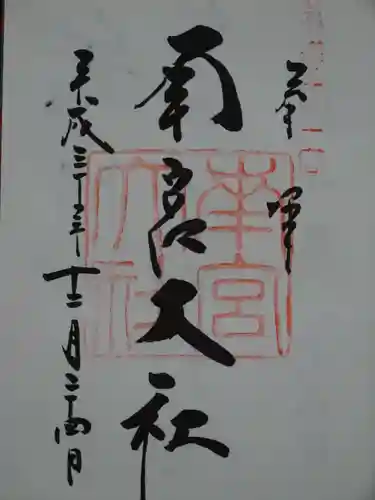 奉拝
南宮大社
平成二十三年十二月二十四日
南宮
大社